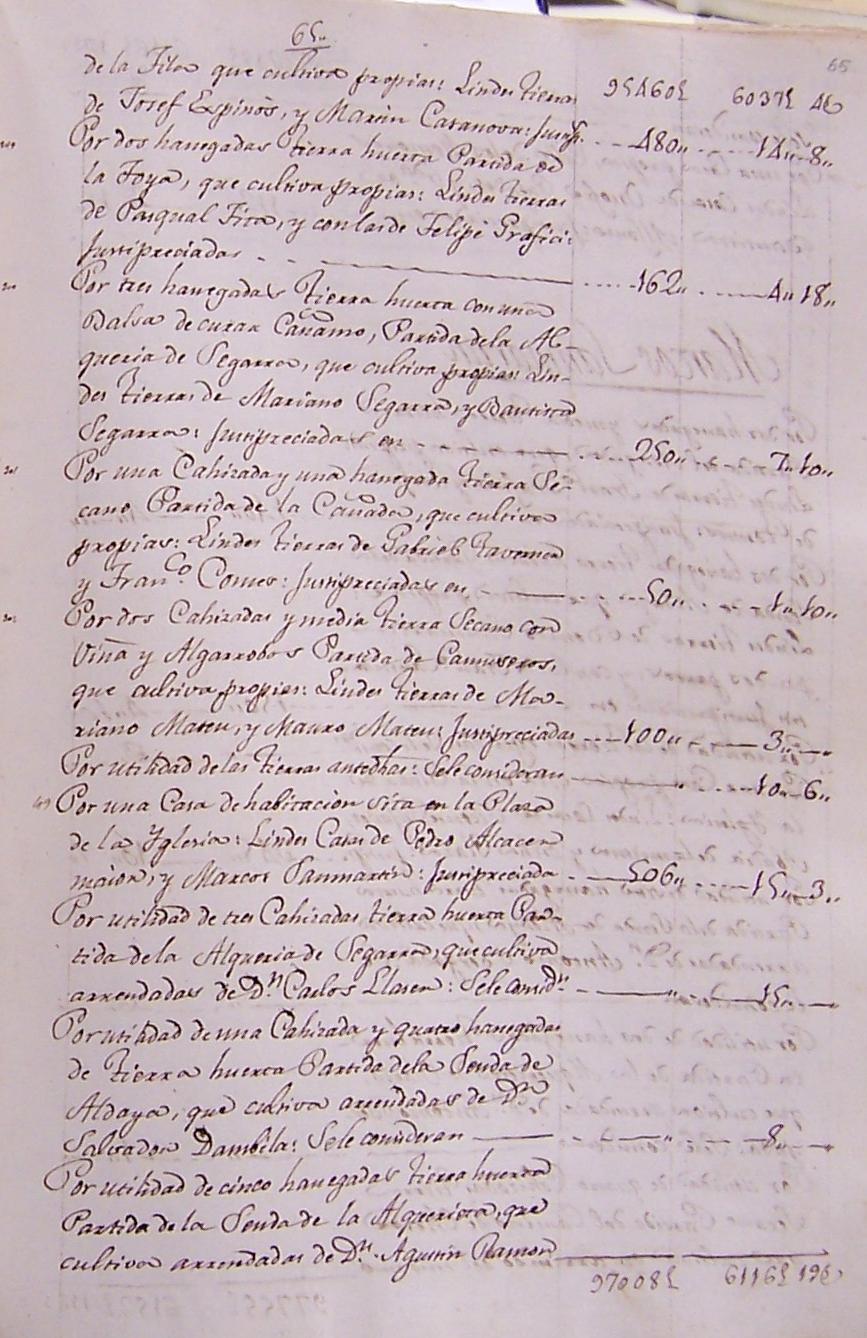 65.,
65
de la Fila que cultiva propias: Lindes tierras 95460£ 6037£ 4s
de Josef Espinòs, y Martin Casanova: Justip.s 480,, 14,, 8,,
Por dos hanegadas tierra huerta Partida de
la Foya, que cultiva propias: Lindes tierras
de Pasqual Fita, y con las de Felipe Grafici:
Justipreciadas 162,, 4,, 18,,
Por tres hanegadas tierra huerta con una
Balsa de curar Cañamo, Partida de la Al-
queria de Segarra, que cultiva propias: Lin-
des tierras de Mariano Segarra, y Bautista
Segarra: Justipreciadas en 250,, 7,, 10,,
Por una Cahizada y una hanegada tierra Se-
cano Partida de la Cañada, que cultiva
propias: Lindes tierras de Gabriel Taverner
y Fran.co Comes: Justipreciadas en 50,, 1,, 10,,
Por dos Cahizadas y media tierra Secano con
Viña y Algarrobos Partida de Camuseros,
que cultiva propias: Lindes tierras de Ma-
riano Mateu, y Mauro Mateu: Justipreciadas 100,, 3,,
Por utilidad de las tierras antedhas: Sele consideran ,, 10,, 6,,
Por una Casa de habitacion sita en la Plaza
de la Yglesia: Lindes Casas de Pedro Alcacer
maior, y Marcos Sanmartin: Justipreciada 506,, 15,, 3,,
Por utilidad de tres Cahizadas tierra huerta Par-
tida de la Alqueria de Segarra, que cultiva
arrendadas de D.n Carlos Llacer: Sele consid.n ,, 15,,
Por utilidad de una Cahizada y quatro hanegadas
de tierra huerta Partida de la Senda de
Aldaya, que cultiva arrendadas de D.n
Salvador Dambila: Sele consideran ,, 8,,
Por utilidad de cinco hanegadas tierra huerta
Partida de la Senda de la Alquerieta, que
cultiva arrendadas de D.n Agustin Ramon
97008£ 6116£ 19s